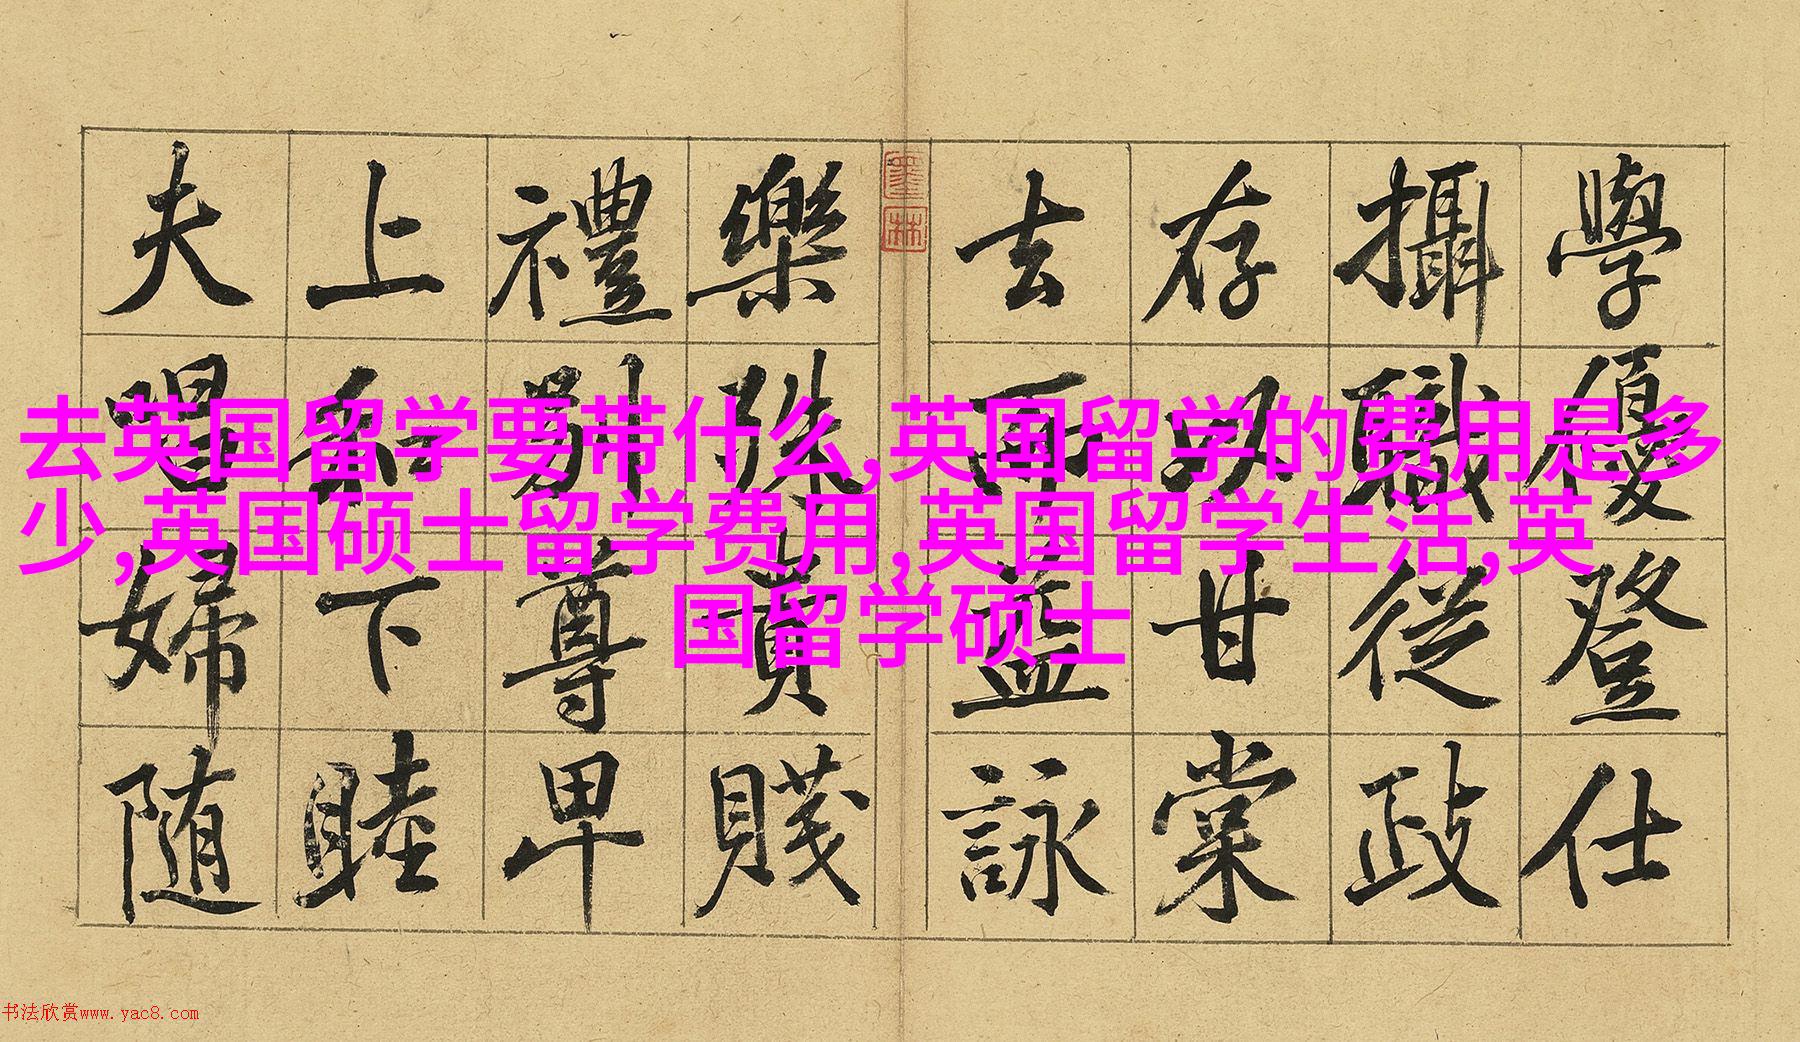 去英国留学要带什么,英国留学的费用是多
少,英国硕士留学费用,英国留学生活,英
国留学硕士
學優登仕
攝職從政
存以甘棠
去而益詠
墨林
樂殊貴賤
禮別尊卑
上和下睦
夫唱婦随
书法欣赏www.yac8.com